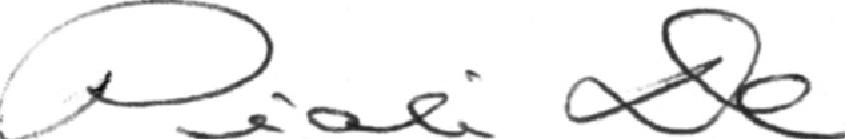 Piali De